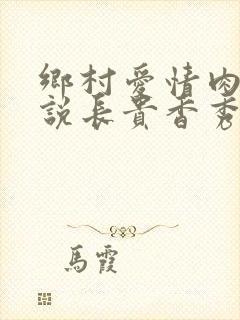 鄉村愛情肉
說長貴香秀
馬霞